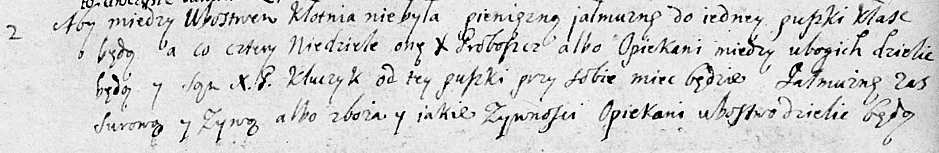 2 Aby miedzy Ubostwem Kłotnia nie była pieniężną jałmużnę do iedney puszki kłasc
będą a co cztery Niedziele onę X Proboszcz albo Opiekani miedzy ubogich dzielic
będą y sąm X. P. Kluczyk od tey puszki przy sobie miec będzie Jałmużnę zas
surową y Zywą albo zboża y jakie Zywnosci Opiekani ubostwo dzielic będą